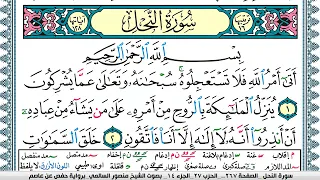 سُورَةُ النَّحْلِ
بِسْمِ اللَّهِ الرَّحْمَٰنِ الرَّحِيمِ
أَتَىٰ أَمْرُ اللَّهِ فَلَا تَسْتَعْجِلُوهُ سُبْحَانَهُ وَتَعَالَىٰ عَمَّا يُشْرِكُونَ
١ يُنَزِّلُ الْمَلَائِكَةَ بِالرُّوحِ مِنْ أَمْرِهِ عَلَىٰ مَنْ يَشَاءُ مِنْ عِبَادِهِ
أَنْ أَنْذِرُوا أَنَّهُ لَا إِلَٰهَ إِلَّا أَنَا فَاتَّقُونِ ٢ خَلَقَ السَّمَاوَاتِ
سورة النحل الصفحة ٢٦٧ الحزب ٢٧ الجزء ١٤ بصوت الشيخ منصور السالمي برواية حفص عن عاصم